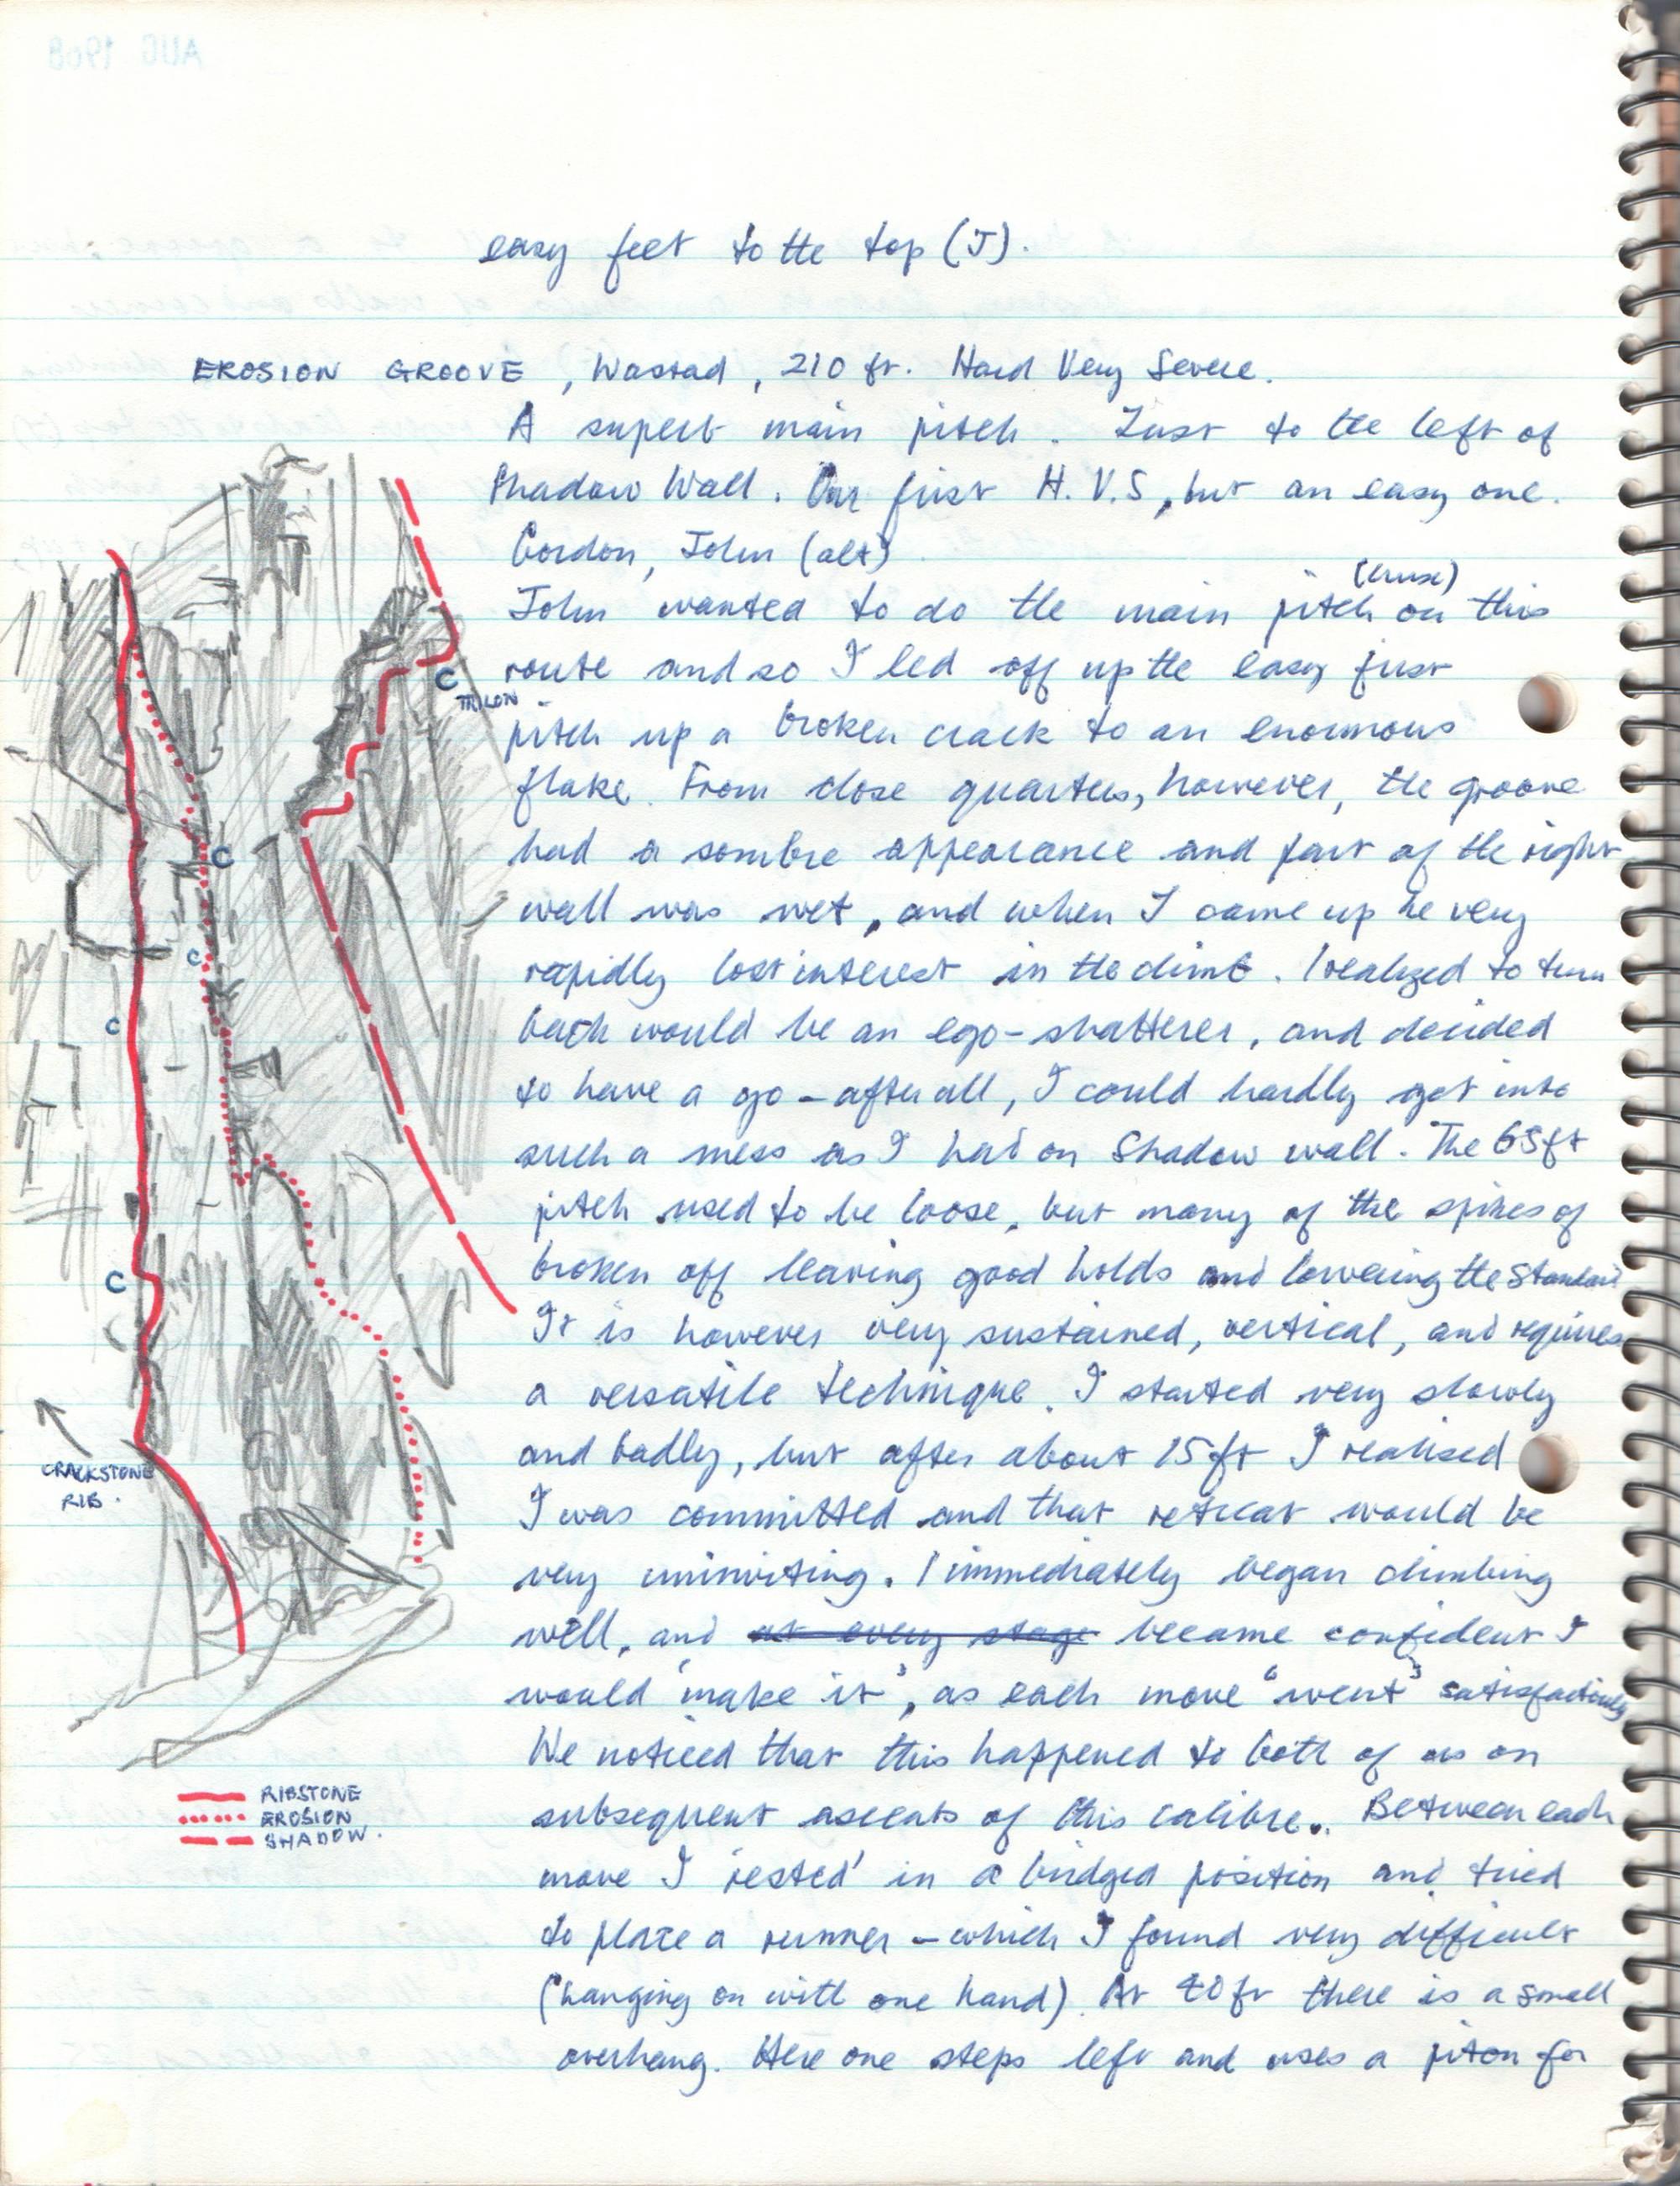 easy feet to the top (J).
EROSION GROOVE, Wastad, 210 ft. Hard Very Severe.
A superb main pitch. Just to the left of
Shadow Wall. Our first H.V.S, but an easy one.
Gordon, John (alt)
(crux)
John wanted to do the main pitch on this
route and so I led off up the easy first
pitch up a broken crack to an enormous
flake. From close quarters, however, the groove
had a sombre appearance and part of the right
wall was wet, and when I came up he very
rapidly lost interest in the climb. I realized to turn
back would be an ego-shatterer, and decided
to have a go - after all, I could hardly get into
such a mess as I had on Shadow wall. The 65ft
pitch used to be loose, but many of the spikes of
broken off leaving good holds and lowering the standard
It is however very sustained, vertical, and requires
a versatile technique. I started very slowly
and badly, but after about 15ft I realised
I was committed and that retreat would be
very uninviting. I immediately began climbing
well, and at every stage became confident I
would 'make it', as each move "went" satisfactorily
We noticed that this happened to both of us on
subsequent ascents of this calibre. Between each
move I 'rested' in a bridged position and tried
to place a runner - which I found very difficult
(hanging on with one hand). At 40ft there is a small
overhang. Here one steps left and uses a piton for
C
C
C
C
C
CRACKSTONE
RIB.
RIBSTONE
EROSION
SHADOW.
AUG 1968